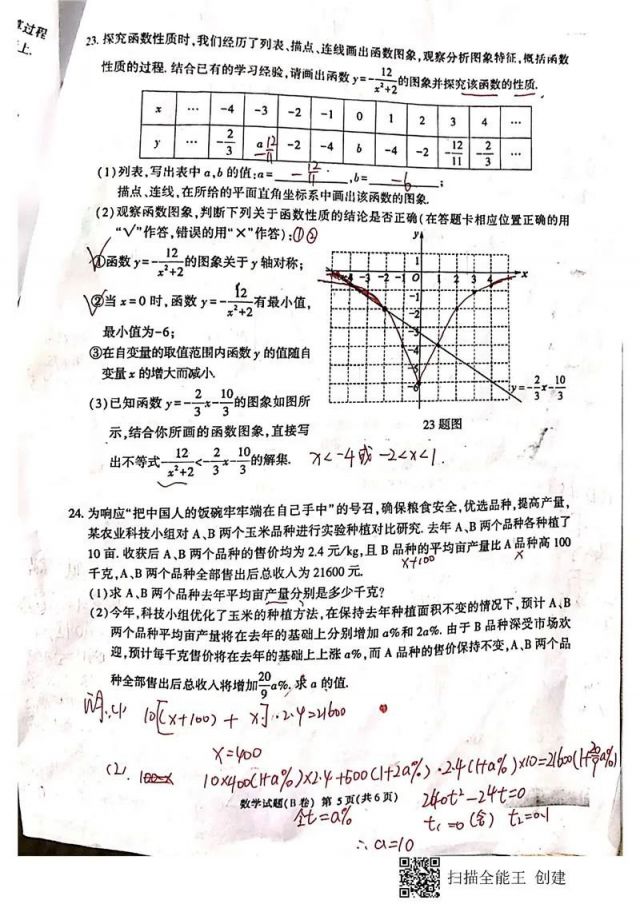 过程
上.
23. 探究函数性质时,我们经历了列表、描点、连线画出函数图象,观察分析图象特征,概括函数
性质的过程. 结合已有的学习经验,请画出函数 y=-12/(x²+2) 的图象并探究该函数的性质.
x … -4 -3 -2 -1 0 1 2 3 4 …
y … -2/3 a -12/11 -2 -4 b -4 -2 -12/11 -2/3 …
(1)列表,写出表中 a,b 的值:a= -12/11 ,b= -6 ;
描点、连线,在所给的平面直角坐标系中画出该函数的图象.
(2)观察函数图象,判断下列关于函数性质的结论是否正确(在答题卡相应位置正确的用
“√”作答,错误的用“×”作答):①②
√①函数 y=-12/(x²+2) 的图象关于 y 轴对称;
√②当 x=0 时,函数 y=-12/(x²+2) 有最小值,
最小值为-6;
③在自变量的取值范围内函数 y 的值随自
变量 x 的增大而减小.
(3)已知函数 y=-2/3x-10/3 的图象如图所
示,结合你所画的函数图象,直接写
出不等式 -12/(x²+2)<-2/3x-10/3 的解集. x<-4或 -2<x<1.
y
1
-4 -3 -2 -1 O 1 2 3 4 x
-1
-2
-3
-4
-5
-6
y=-2/3x-10/3
23题图
24. 为响应“把中国人的饭碗牢牢端在自己手中”的号召,确保粮食安全,优选品种,提高产量,
某农业科技小组对 A、B 两个玉米品种进行实验种植对比研究. 去年 A、B 两个品种各种植了
10 亩. 收获后 A、B 两个品种的售价均为 2.4 元/kg,且 B 品种的平均亩产量比 A 品种高 100
x+100 x
千克,A、B 两个品种全部售出后总收入为 21600 元.
(1)求 A、B 两个品种去年平均亩产量分别是多少千克?
(2)今年,科技小组优化了玉米的种植方法,在保持去年种植面积不变的情况下,预计 A、B
两个品种平均亩产量将在去年的基础上分别增加 a%和 2a%. 由于 B 品种深受市场欢
迎,预计每千克售价将在去年的基础上上涨 a%,而 A 品种的售价保持不变,A、B 两个品
种全部售出后总收入将增加 20/9 a%. 求 a 的值.
10[(x+100)+x]·2.4=21600
x=400
(2). 10×400(1+a%)×2.4+500(1+2a%)·2.4(1+a%)×10=21600(1+20/9a%)
数学试题(B卷) 第5页(共6页)
240t²-24t=0
令t=a%
t₁=0(舍) t₂=0.1
∴a=10
扫描全能王 创建